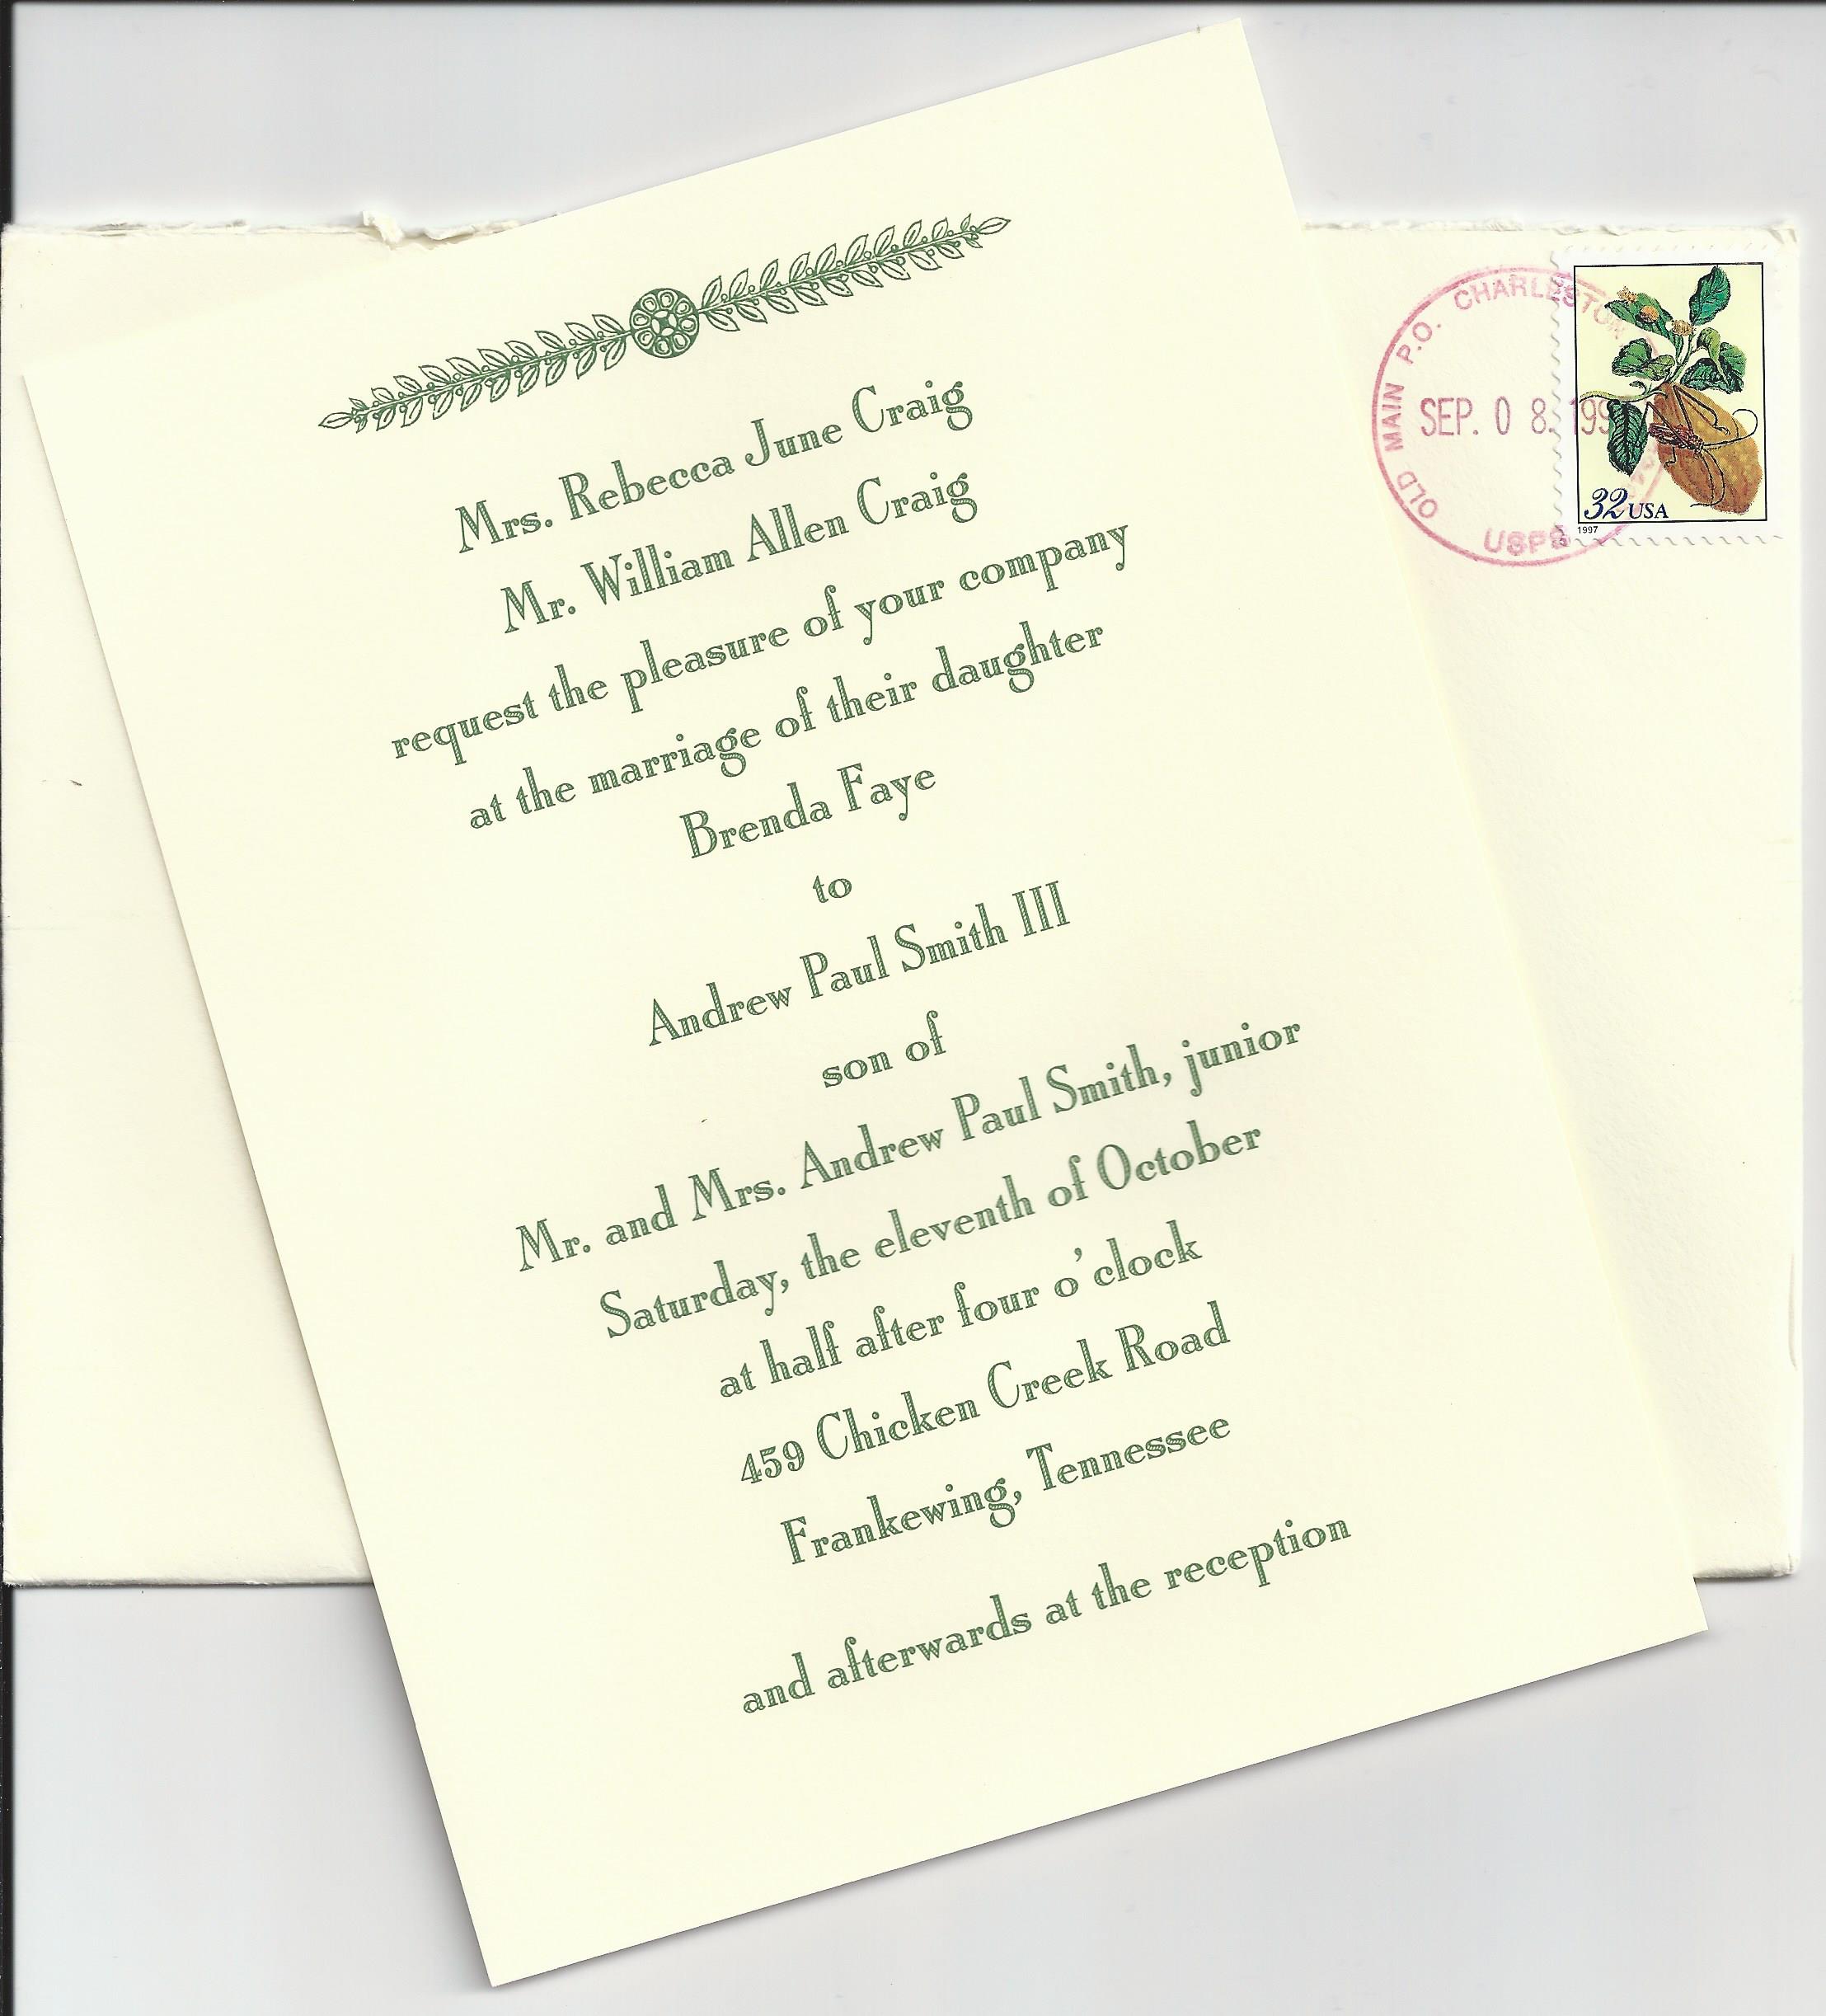 Mrs. Rebecca June Craig
Mr. William Allen Craig
request the pleasure of your company
at the marriage of their daughter
Brenda Faye
to
Andrew Paul Smith III
son of
Mr. and Mrs. Andrew Paul Smith, junior
Saturday, the eleventh of October
at half after four o'clock
459 Chicken Creek Road
Frankewing, Tennessee
and afterwards at the reception
OLD MAIN P.O. CHARLESTON
SEP. 08 199
USPS
32 USA
1997